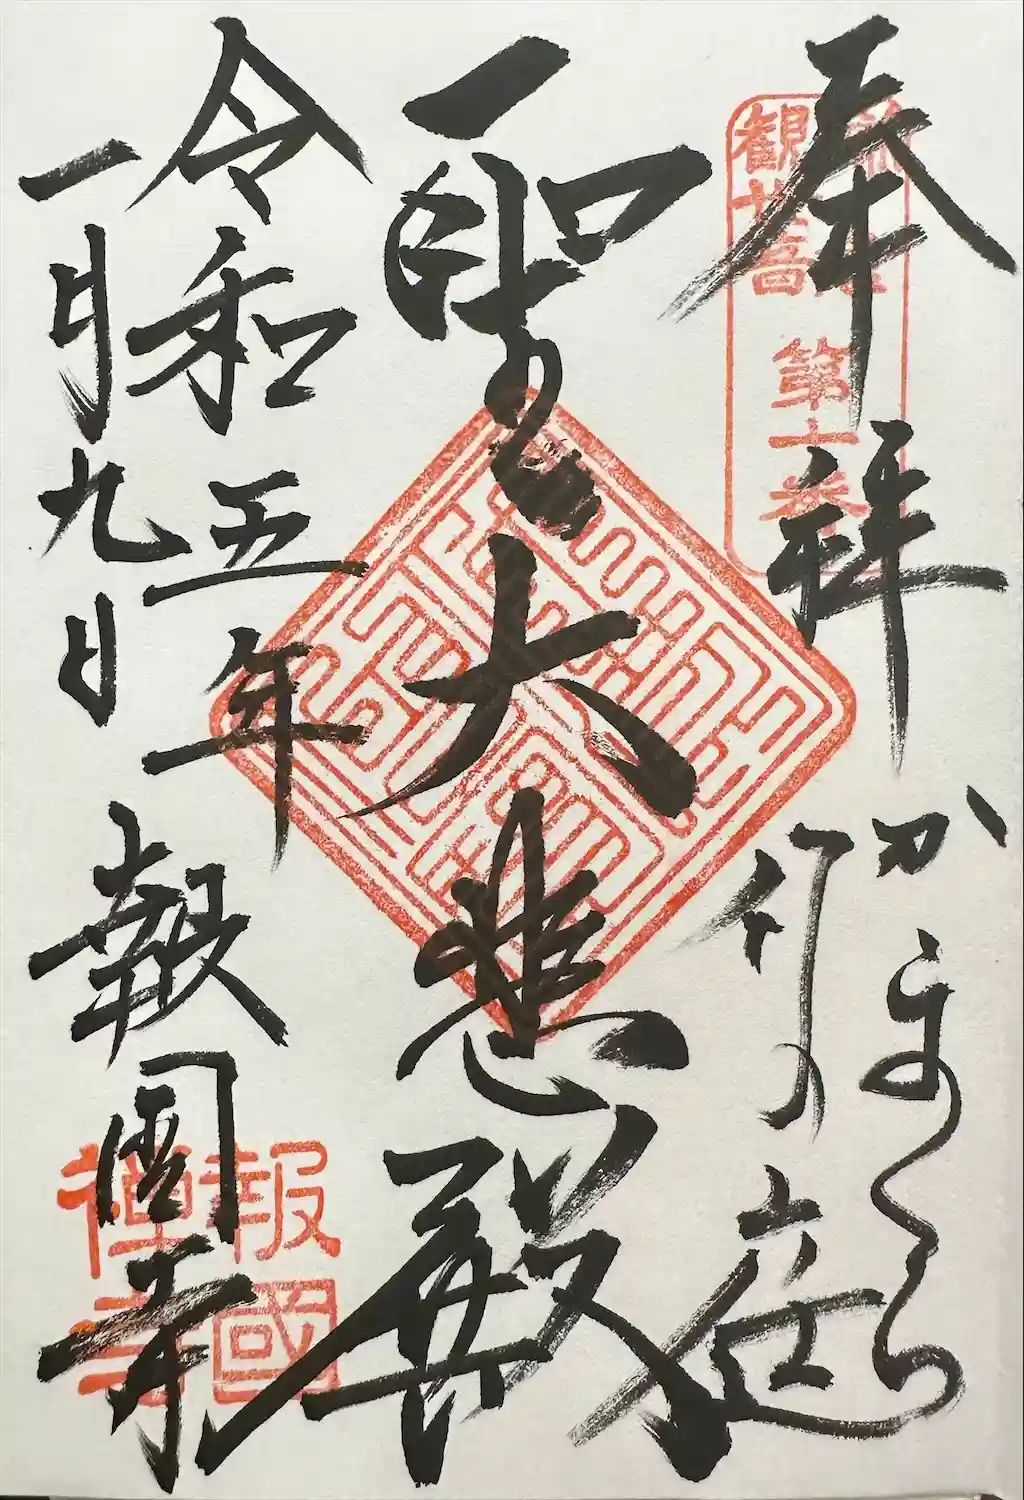 奉拝
かまくら
竹の庭
聖大悲殿
令和五年
一月九日
報國寺
鎌倉
観世音
第十番
報國
禅寺